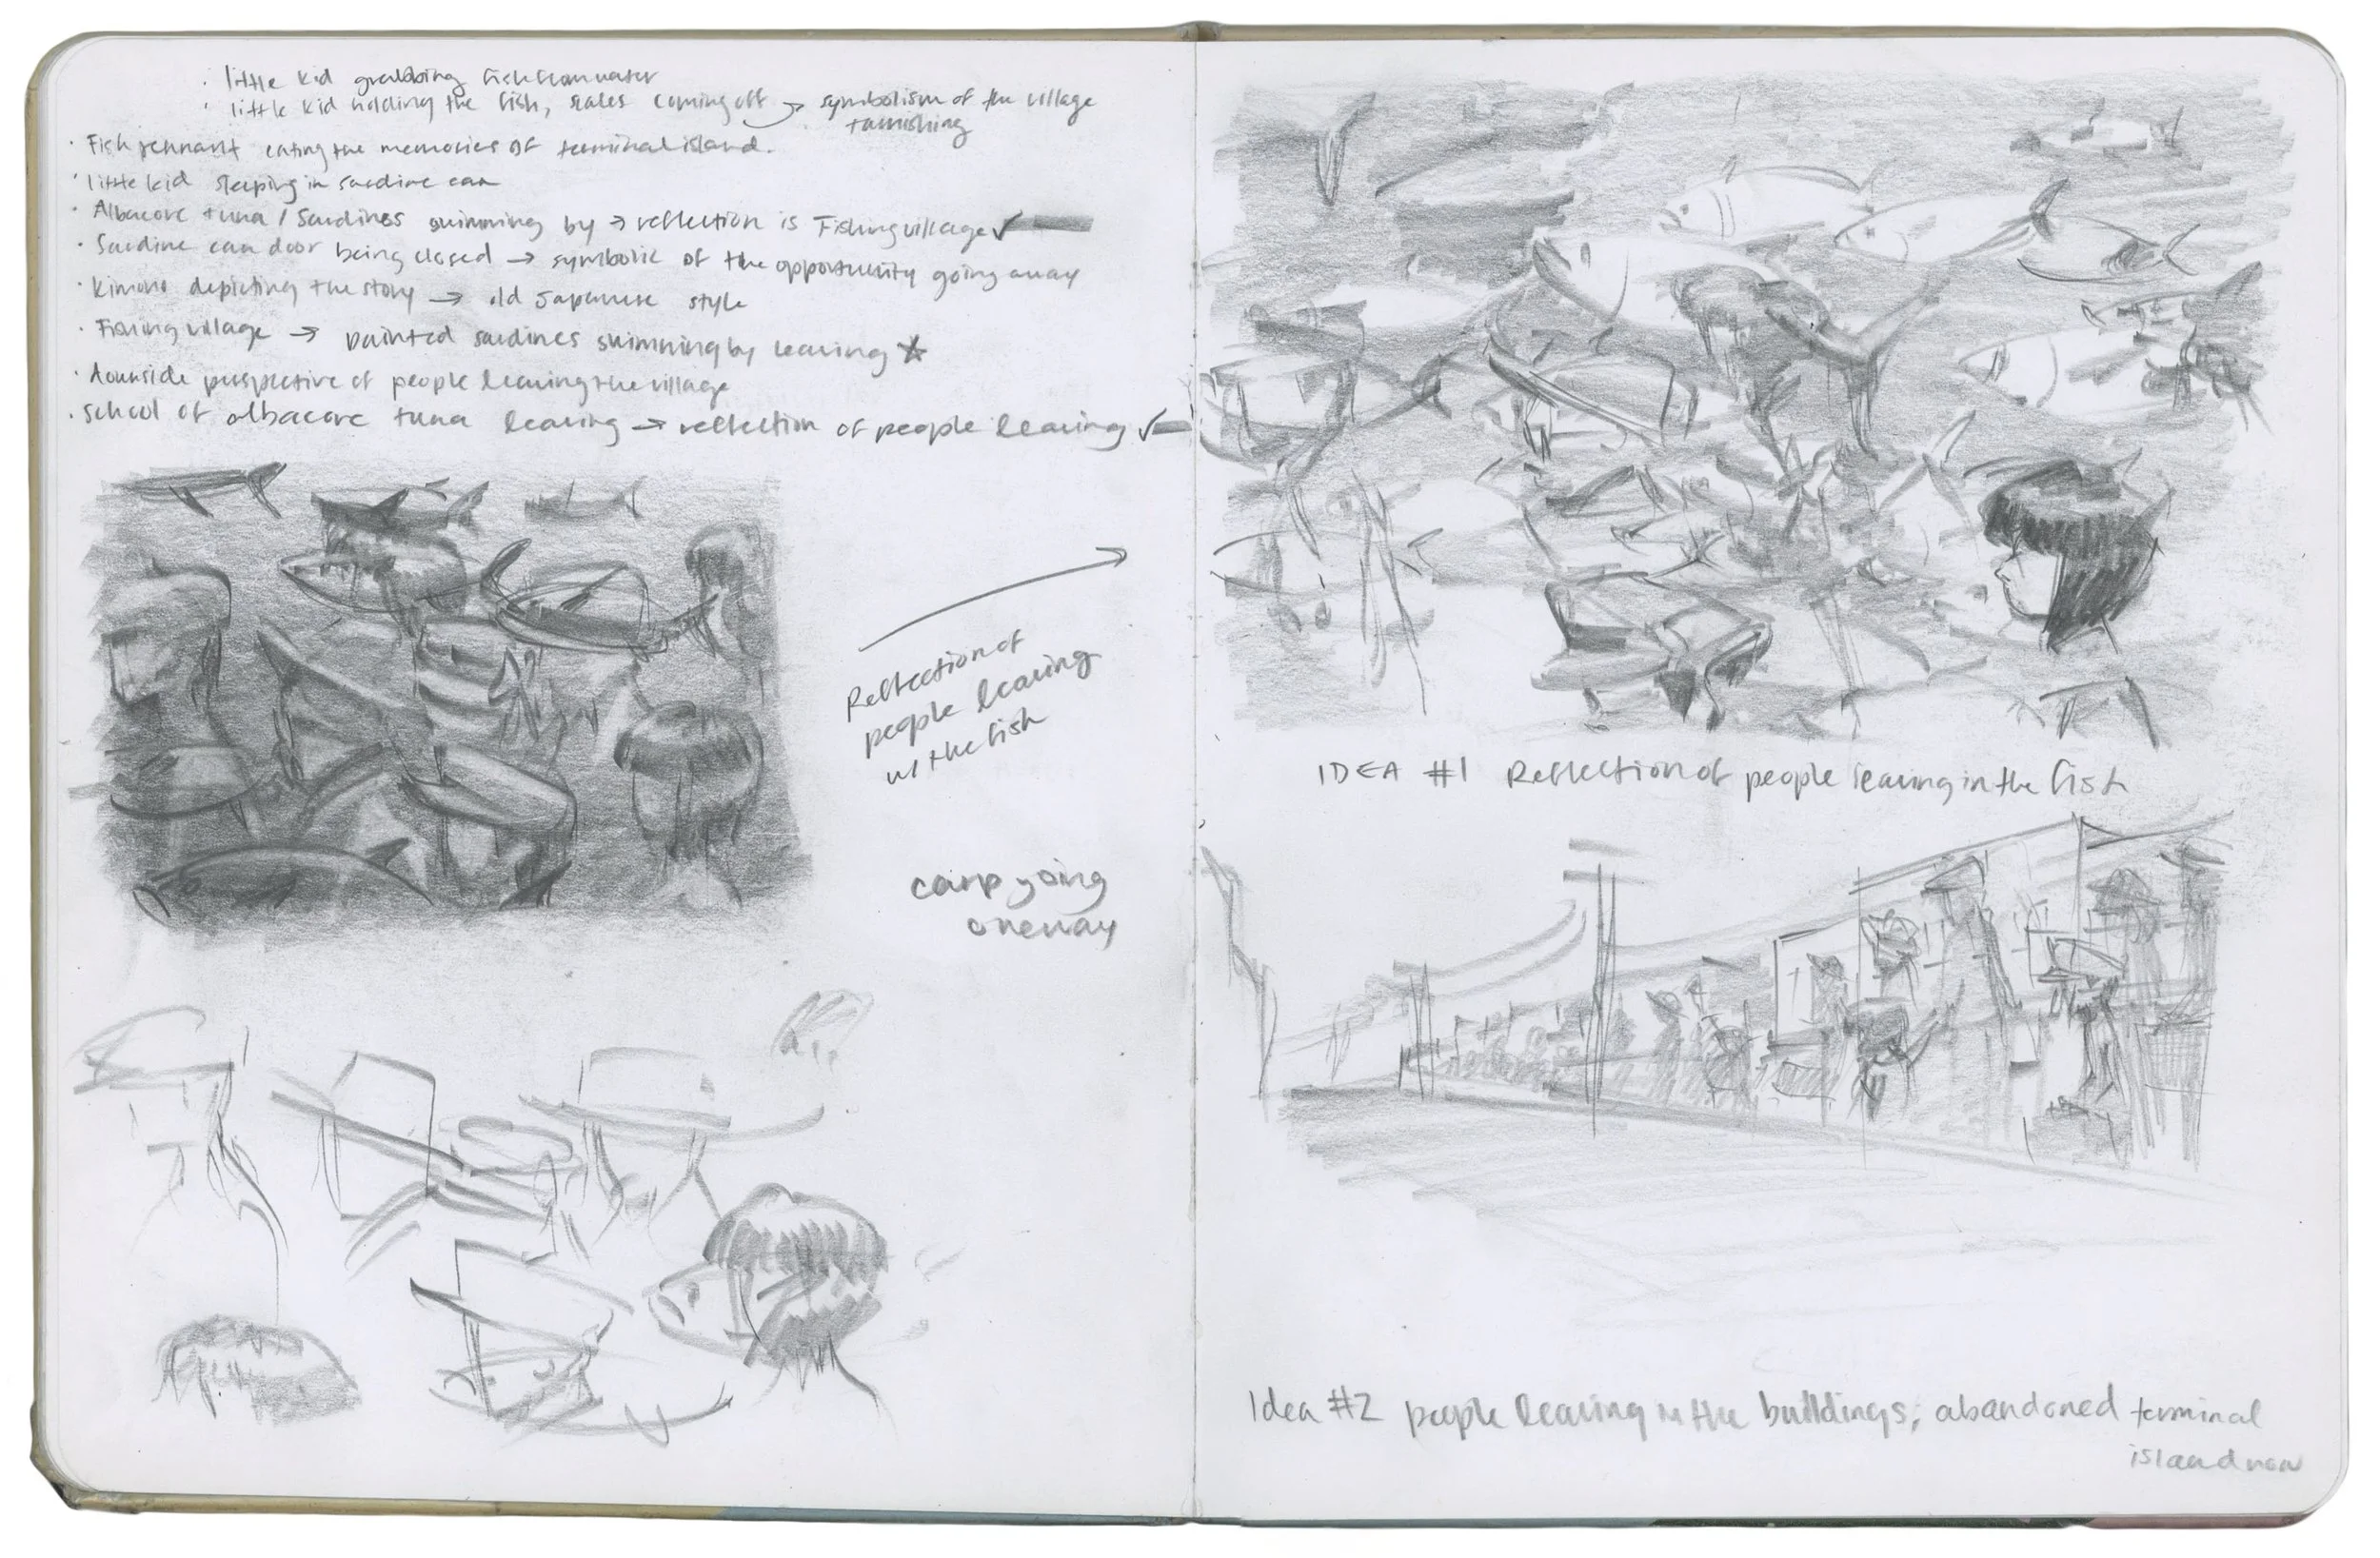 · little kid grabbing fish from water
· little kid holding the fish, scales coming off → symbolism of the village
tarnishing
· Fish pennant eating the memories of terminal island.
· little kid sleeping in sardine can
· Albacore tuna / Sardines swimming by → reflection is Fishing village ✓
· Sardine can door being closed → symbolic of the opportunity going away
· kimono depicting the story → old Japanese style
· Fishing village → painted sardines swimming by leaving ★
· perspective of people leaving the village
· school of albacore tuna leaving → reflection of people leaving ✓
Reflection of
people leaving
w/ the fish
carp going
one way
IDEA #1 Reflection of people leaving in the fish
Idea #2 people leaving in the buildings; abandoned terminal
island now